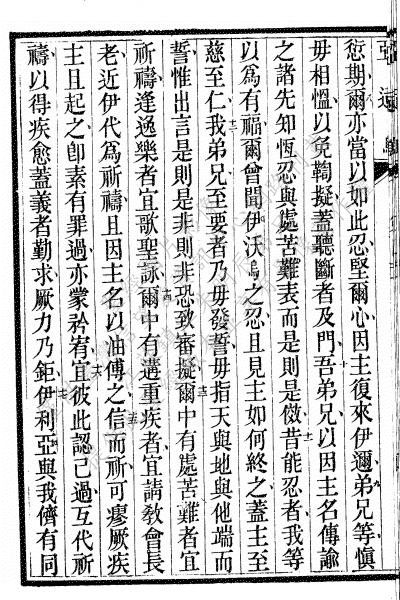 愆期爾亦當以如此忍堅爾心因主復來伊邇弟兄等愼
毋相慍以免鞫擬蓋聽斷者及門吾弟兄以因主名傳諭
之諸先知恆忍與處苦難表而是則是傚昔能忍者我等
以爲有福爾曾聞伊沃烏之忍且見主如何終之蓋主至
慈至仁我弟兄至要者乃毋發誓毋指天與地與他端而
誓惟出言是則是非則非恐致審擬爾中有處苦難者宜
祈禱逢逸樂者宜歌聖詠爾中有遘重疾者宜請敎會長
老近伊代爲祈禱且因主名以油傅之信而祈可瘳厥疾
主且起之卽素有罪過亦蒙矜宥宜彼此認己過互代祈
禱以得疾愈蓋義者勤求厥力乃鉅伊利亞與我儕有同